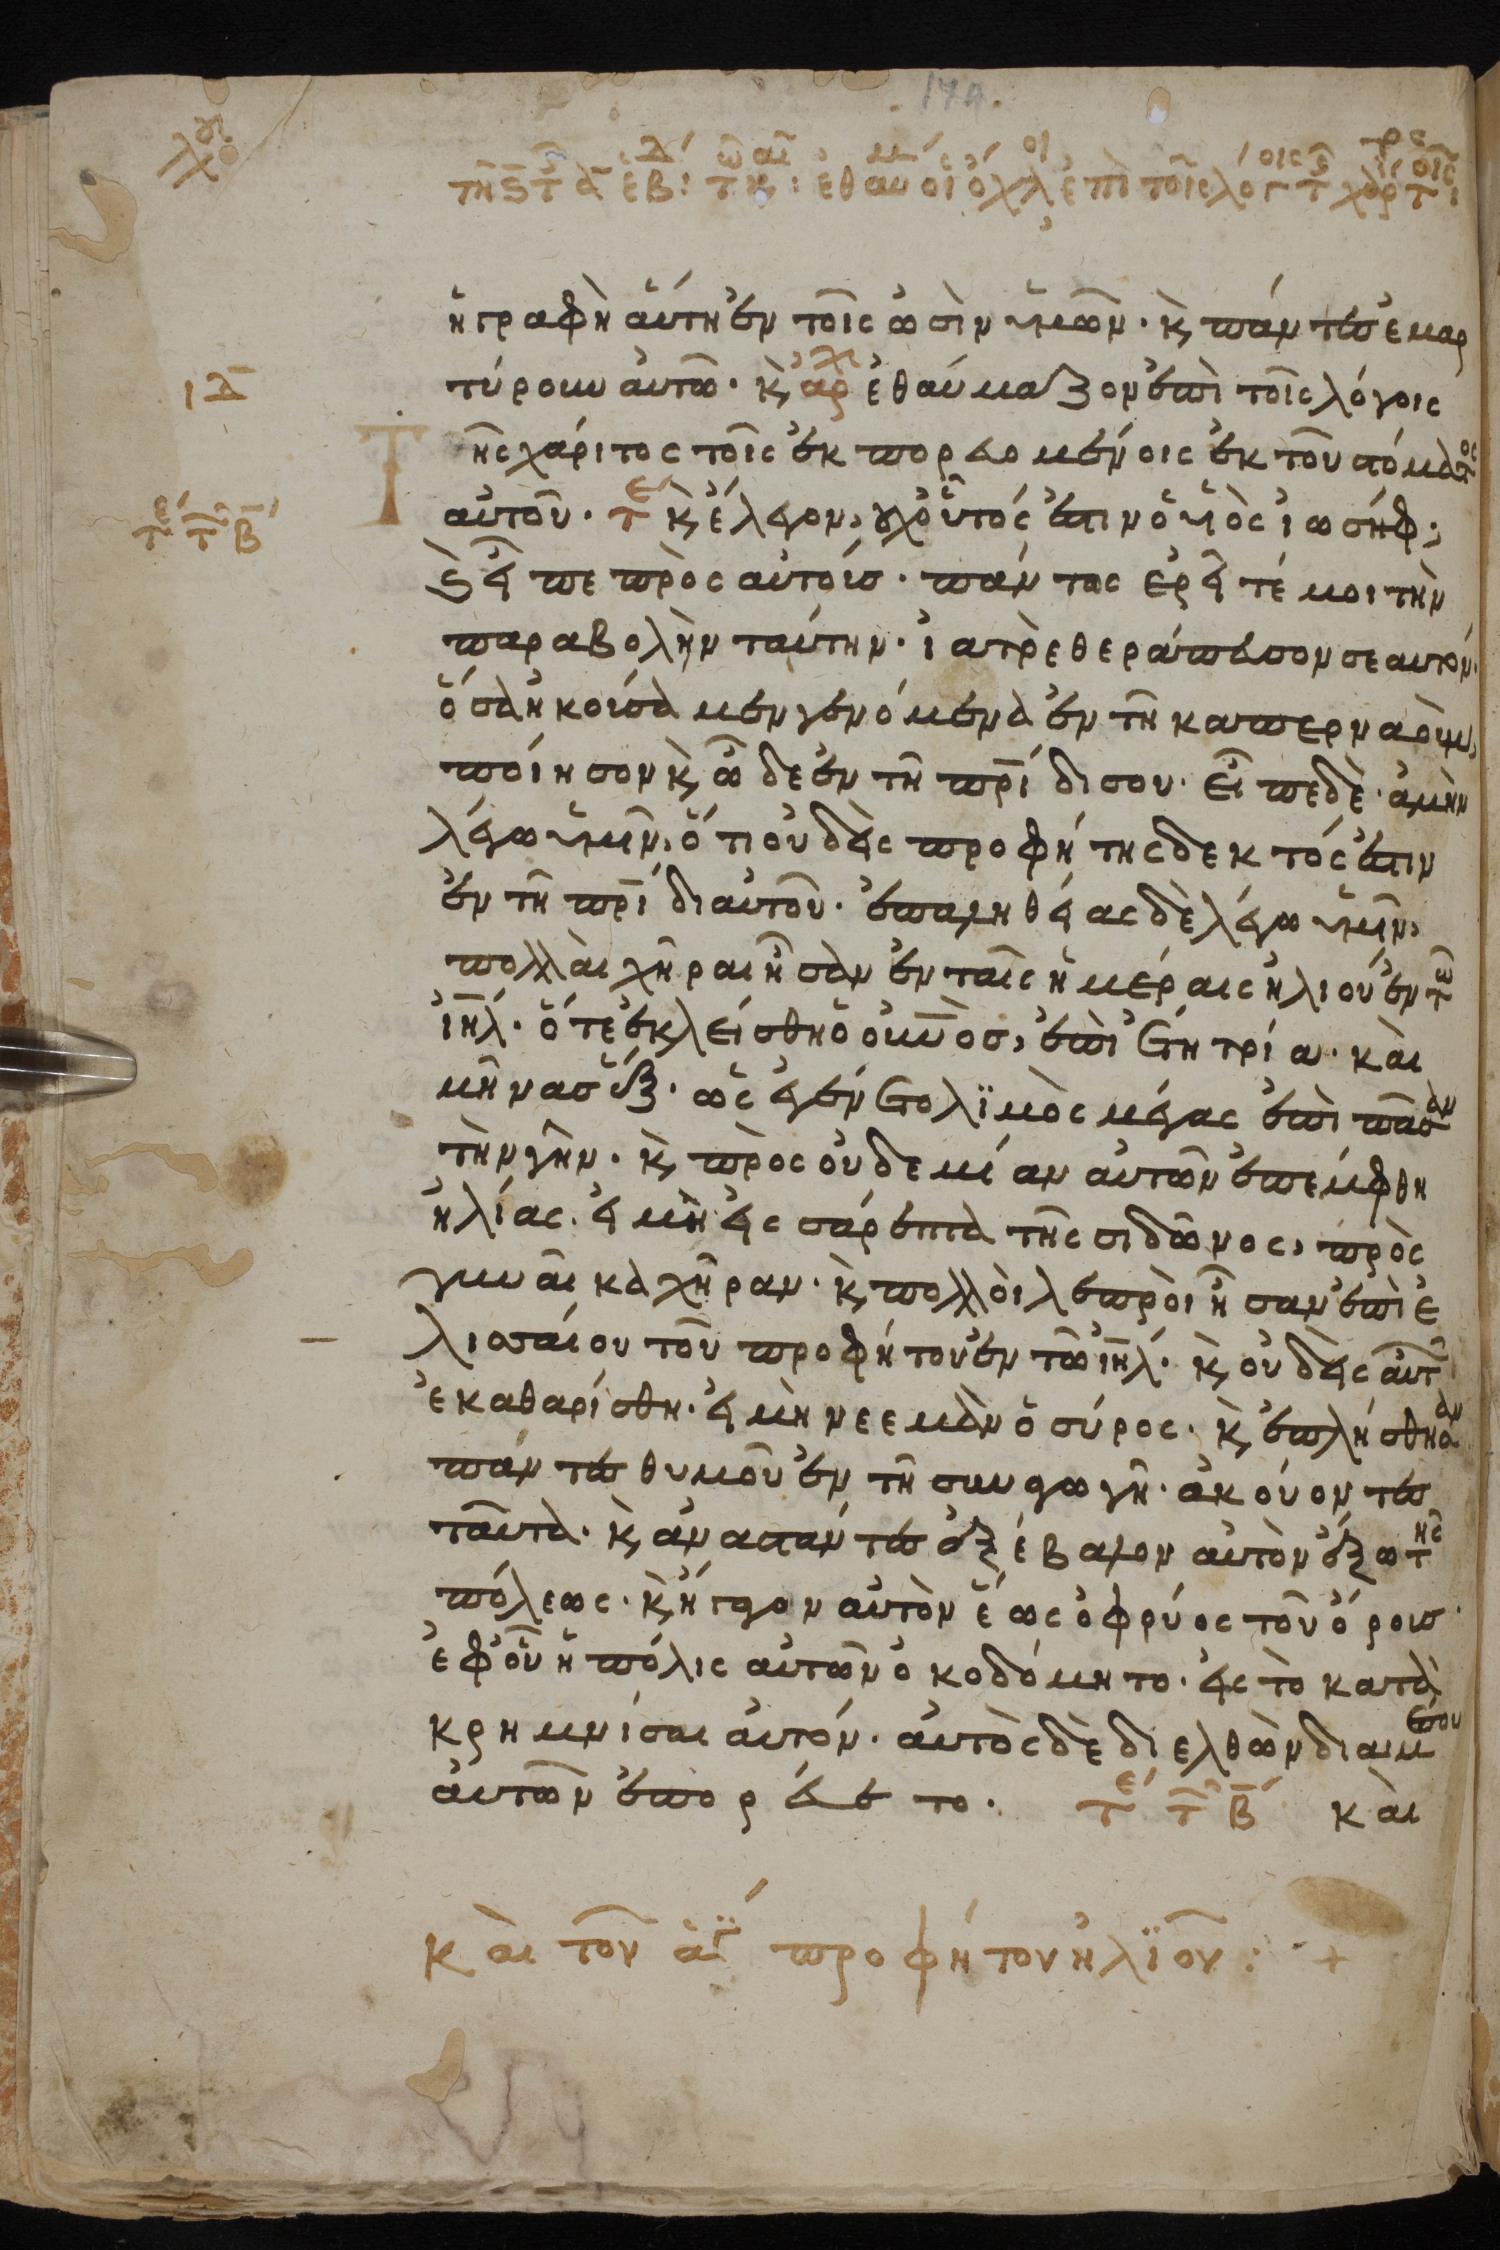 ἡ γραφὴ αὕτη ἐν τοῖς ὠσὶν ὑμῶν· κ, πάντες ἐμαρ
τύρουν αὐτῶ· κ, ἀρχ ἐθαύμαζον ἐπὶ τοῖς λόγοις
Τῆς χάριτος τοῖς ἐκπορευομένοις ἐκ τοῦ στόματος
ΙΔ
αὐτοῦ· τε κ, ἔλεγον, οὐχ οὗτός ἐστιν ὁ υἱὸς ἰωσήφ;
τε τ β
κ, εἶπε πρὸς αὐτούς· πάντως ἐρεῖτέ μοι τὴν
παραβολὴν ταύτην· ἰατρὲ θεράπευσον σεαυτόν·
ὅσα ἠκούσαμεν γενόμενα ἐν τῆ καπερναοὺμ,
ποίησον κ, ὧδε ἐν τῆ πρίδι σου· εἶπε δὲ· ἀμὴν
λέγω ὑμῖν, ὅτι οὐδεὶς προφήτης δεκτός ἐστιν
ἐν τῆ πρίδι αὐτοῦ· ἐπ ἀληθείας δὲ λέγω ὑμῖν,
πολλαὶ χῆραι ἦσαν ἐν ταῖς ἡμέραις ἠλιοὺ ἐν τ
ιηλ· ὅτε ἐκλείσθη ὁ οὐνος, ἐπὶ ἔτη τρία· καὶ
μῆνας ἕξ· ὡς ἐγένετο λϊμὸς μέγας ἐπὶ πᾶσαν
τὴν γῆν· κ, πρὸς οὐδεμίαν αὐτῶν ἐπέμφθη
ἠλίας· εἰ μὴ εἰς σάρεπτα τῆς σιδῶνος, πρὸς
γυναῖκα χῆραν· κ, πολλοὶ λεπροὶ ἦσαν ἐπὶ ἐ
λισσαίου τοῦ προφήτου ἐν τῶ ιηλ· κ, οὐδεὶς αὐτ
ἐκαθαρίσθη· εἰ μὴ νεεμὰν ὁ σύρος· κ, ἐπλήσθησαν
πάντες θυμοῦ ἐν τῆ συναγωγῆ· ἀκούοντες
ταῦτα· κ, ἀναστάντες ἐξέβαλον αὐτὸν ἔξω τῆς
πόλεως· κ, ἤγαγον αὐτὸν ἕως ὀφρύος τοῦ ὄρους·
ἐφ οὗ ἡ πόλις αὐτῶν ὀκοδόμητο· εἰς τὸ κατα
κρημνίσαι αὐτόν· αὐτὸς δὲ διελθὼν δια μέσου
αὐτῶν ἐπορεύετο· τε τ β καὶ
καὶ τοῦ ἁγ προφήτου ἠλϊοῦ: +